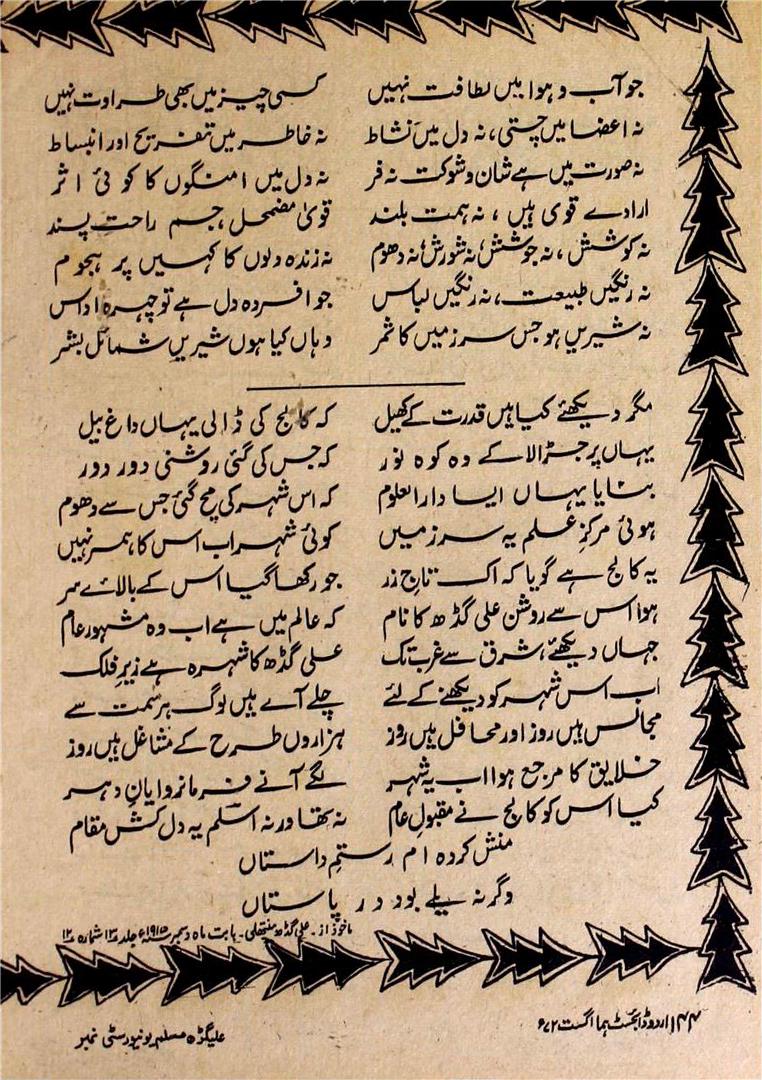 جو آب و ہوا میں لطافت نہیں کسی چیز میں بھی طراوت نہیں
نہ اعضا میں چستی، نہ دل میں نشاط نہ خاطر میں تفریح اور انبساط
نہ صورت میں ہے شان و شوکت نہ فر نہ دل میں امنگوں کا کوئی اثر
ارادے قوی ہیں، نہ ہمت بلند قویٰ مضمحل، جسم راحت پسند
نہ کوشش، نہ جوشش، نہ شورش، نہ دھوم نہ زندہ دلوں کا کہیں پر ہجوم
نہ رنگیں طبیعت، نہ رنگیں لباس جو افسردہ دل ہے تو چہرہ اداس
نہ شیریں ہو جس سرزمیں کا ثمر وہاں کیا ہوں شیریں شمائل بشر
مگر دیکھئے کیا ہیں قدرت کے کھیل کہ کالج کی ڈالی یہاں داغ بیل
یہاں پر جڑا لا کے وہ کوہ نور کہ جس کی گئی روشنی دور دور
بنایا یہاں ایسا دارالعلوم کہ اس شہر کی مچ گئی جس سے دھوم
ہوئی مرکزِ علم یہ سرزمیں کوئی شہر اب اس کا ہمسر نہیں
یہ کالج ہے گویا کہ اک تاج زر جو رکھا گیا اس کے بالائے سر
ہوا اس سے روشن علی گڈھ کا نام کہ عالم میں ہے اب وہ مشہور عام
جہاں دیکھئے، شرق سے غرب تک علی گڈھ کا شہرہ ہے زیرِ فلک
اب اس شہر کو دیکھنے کے لئے چلے آئے ہیں لوگ ہر سمت سے
مجالس ہیں روز اور محافل ہیں روز ہزاروں طرح کے مشاغل ہیں روز
خلایق کا مرجع ہوا اب یہ شہر لگے آنے فرمانروایانِ دہر
کیا اس کو کالج نے مقبولِ عام نہ تھا ورنہ اسلم یہ دل کش مقام
منش کردہ ام رستمِ داستاں
وگرنہ یلے بود در پاستاں
ماخوذ از۔ علی گڈھ منتھلی۔ بابت ماہ دسمبر سنہ ۱۹۱۵ء جلد ۱۳ شمارہ ۱۲
۱۴۴ اردو ڈائجسٹ ہما اگست ۷۲ء
علیگڑھ مسلم یونیورسٹی نمبر